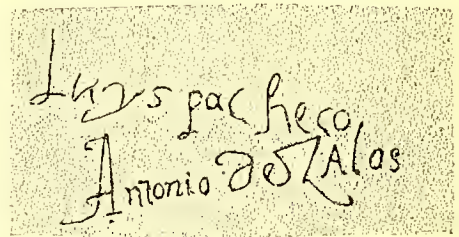 Luys pacheco
Antonio de Zalas